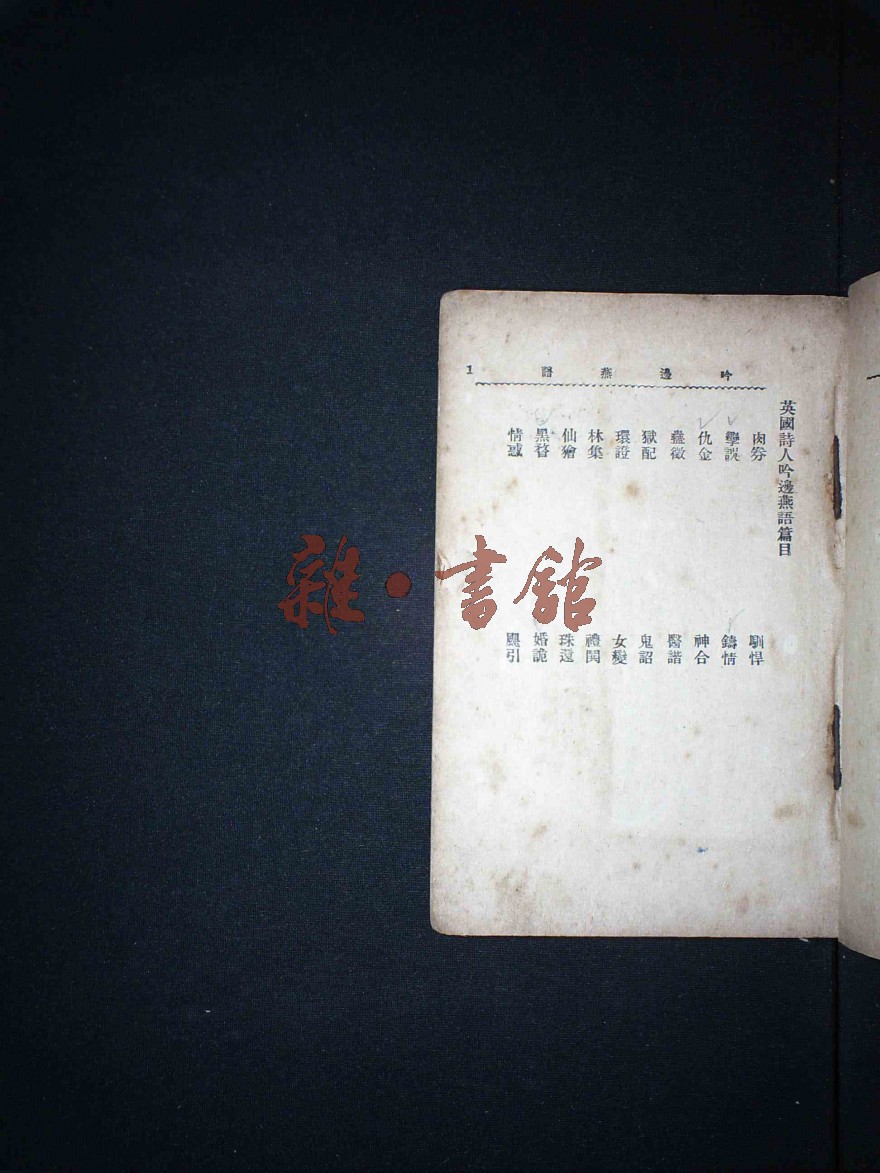 吟邊燕語 1
英國詩人吟邊燕語篇目
肉券 馴悍
孿誤 鑄情
仇金 神合
蠱徵 醫諧
獄配 鬼詔
環證 女變
林集 禮鬨
仙獪 珠還
黑瞀 婚詭
情惑 颶引
雜·書館